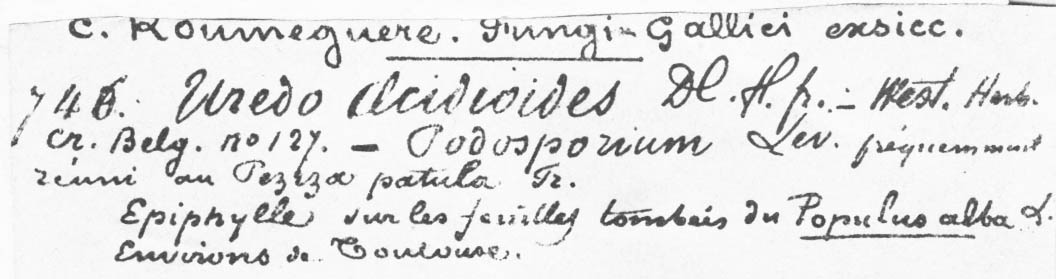 C. Roumeguere. Fungi Gallici exsicc.
746. Uredo Æcidioides Dl. H. fr. - West. Herb.
Cr. Belg. no 127. - Podosporium Lev. fréquemment
réuni au Peziza patula Fr.
Epiphylle sur les feuilles tombées du Populus alba L.
Environs de Toulouse.